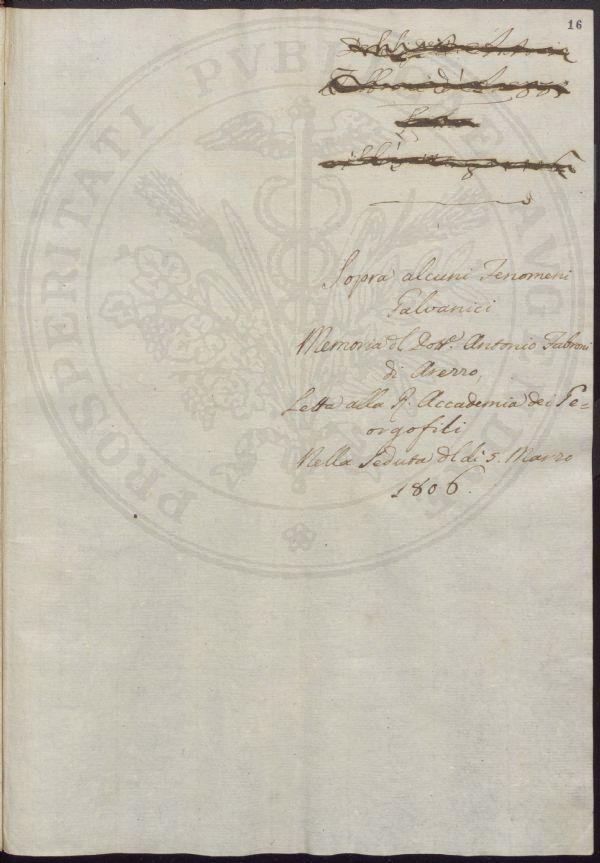 16
Sopra alcuni Fenomeni
Galvanici
Memoria dl Dottr. Antonio Fabroni
di Arezzo,
Letta alla R. Accademia dei Ge-
orgofili
Nella Seduta dl dì 5. Marzo
1806.
PROSPERITATI PVBLICAE AVGENDAE